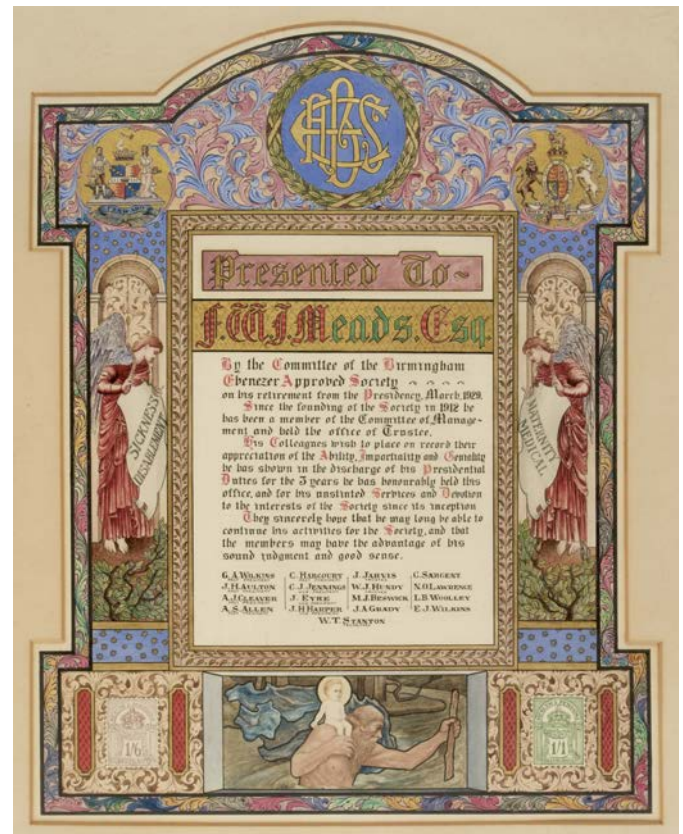 Presented To~
F.W.J.Meads.Esq.
By the Committee of the Birmingham
Ebenezer Approved Society
on his retirement from the Presidency, March, 1929.
Since the founding of the Society in 1912 he
has been a member of the Committee of Manage-
ment and held the office of Trustee.
His Colleagues wish to place on record their
appreciation of the Ability, Impartiality and Geniality
he has shown in the discharge of his Presidential
Duties for the 3 years he has honourably held this
office, and for his unstinted Services and Devotion
to the interests of the Society since its inception
They sincerely hope that he may long be able to
continue his activities for the Society, and that
the members may have the advantage of his
sound judgment and good sense.
G.A.WILKINS C.HARCOURT J.JARVIS C.SARGENT
J.H.AULTON C.J.JENNINGS W.J.HUNDY N.O.LAWRENCE
A.J.CLEAVER J.EYRE M.J.BESWICK L.B.WOOLLEY
A.S.ALLEN J.H.HARPER J.A.GRADY E.J.WILKINS
W.T.STANTON
SICKNESS
DISABLEMENT
MATERNITY
MEDICAL
1/6
1/1